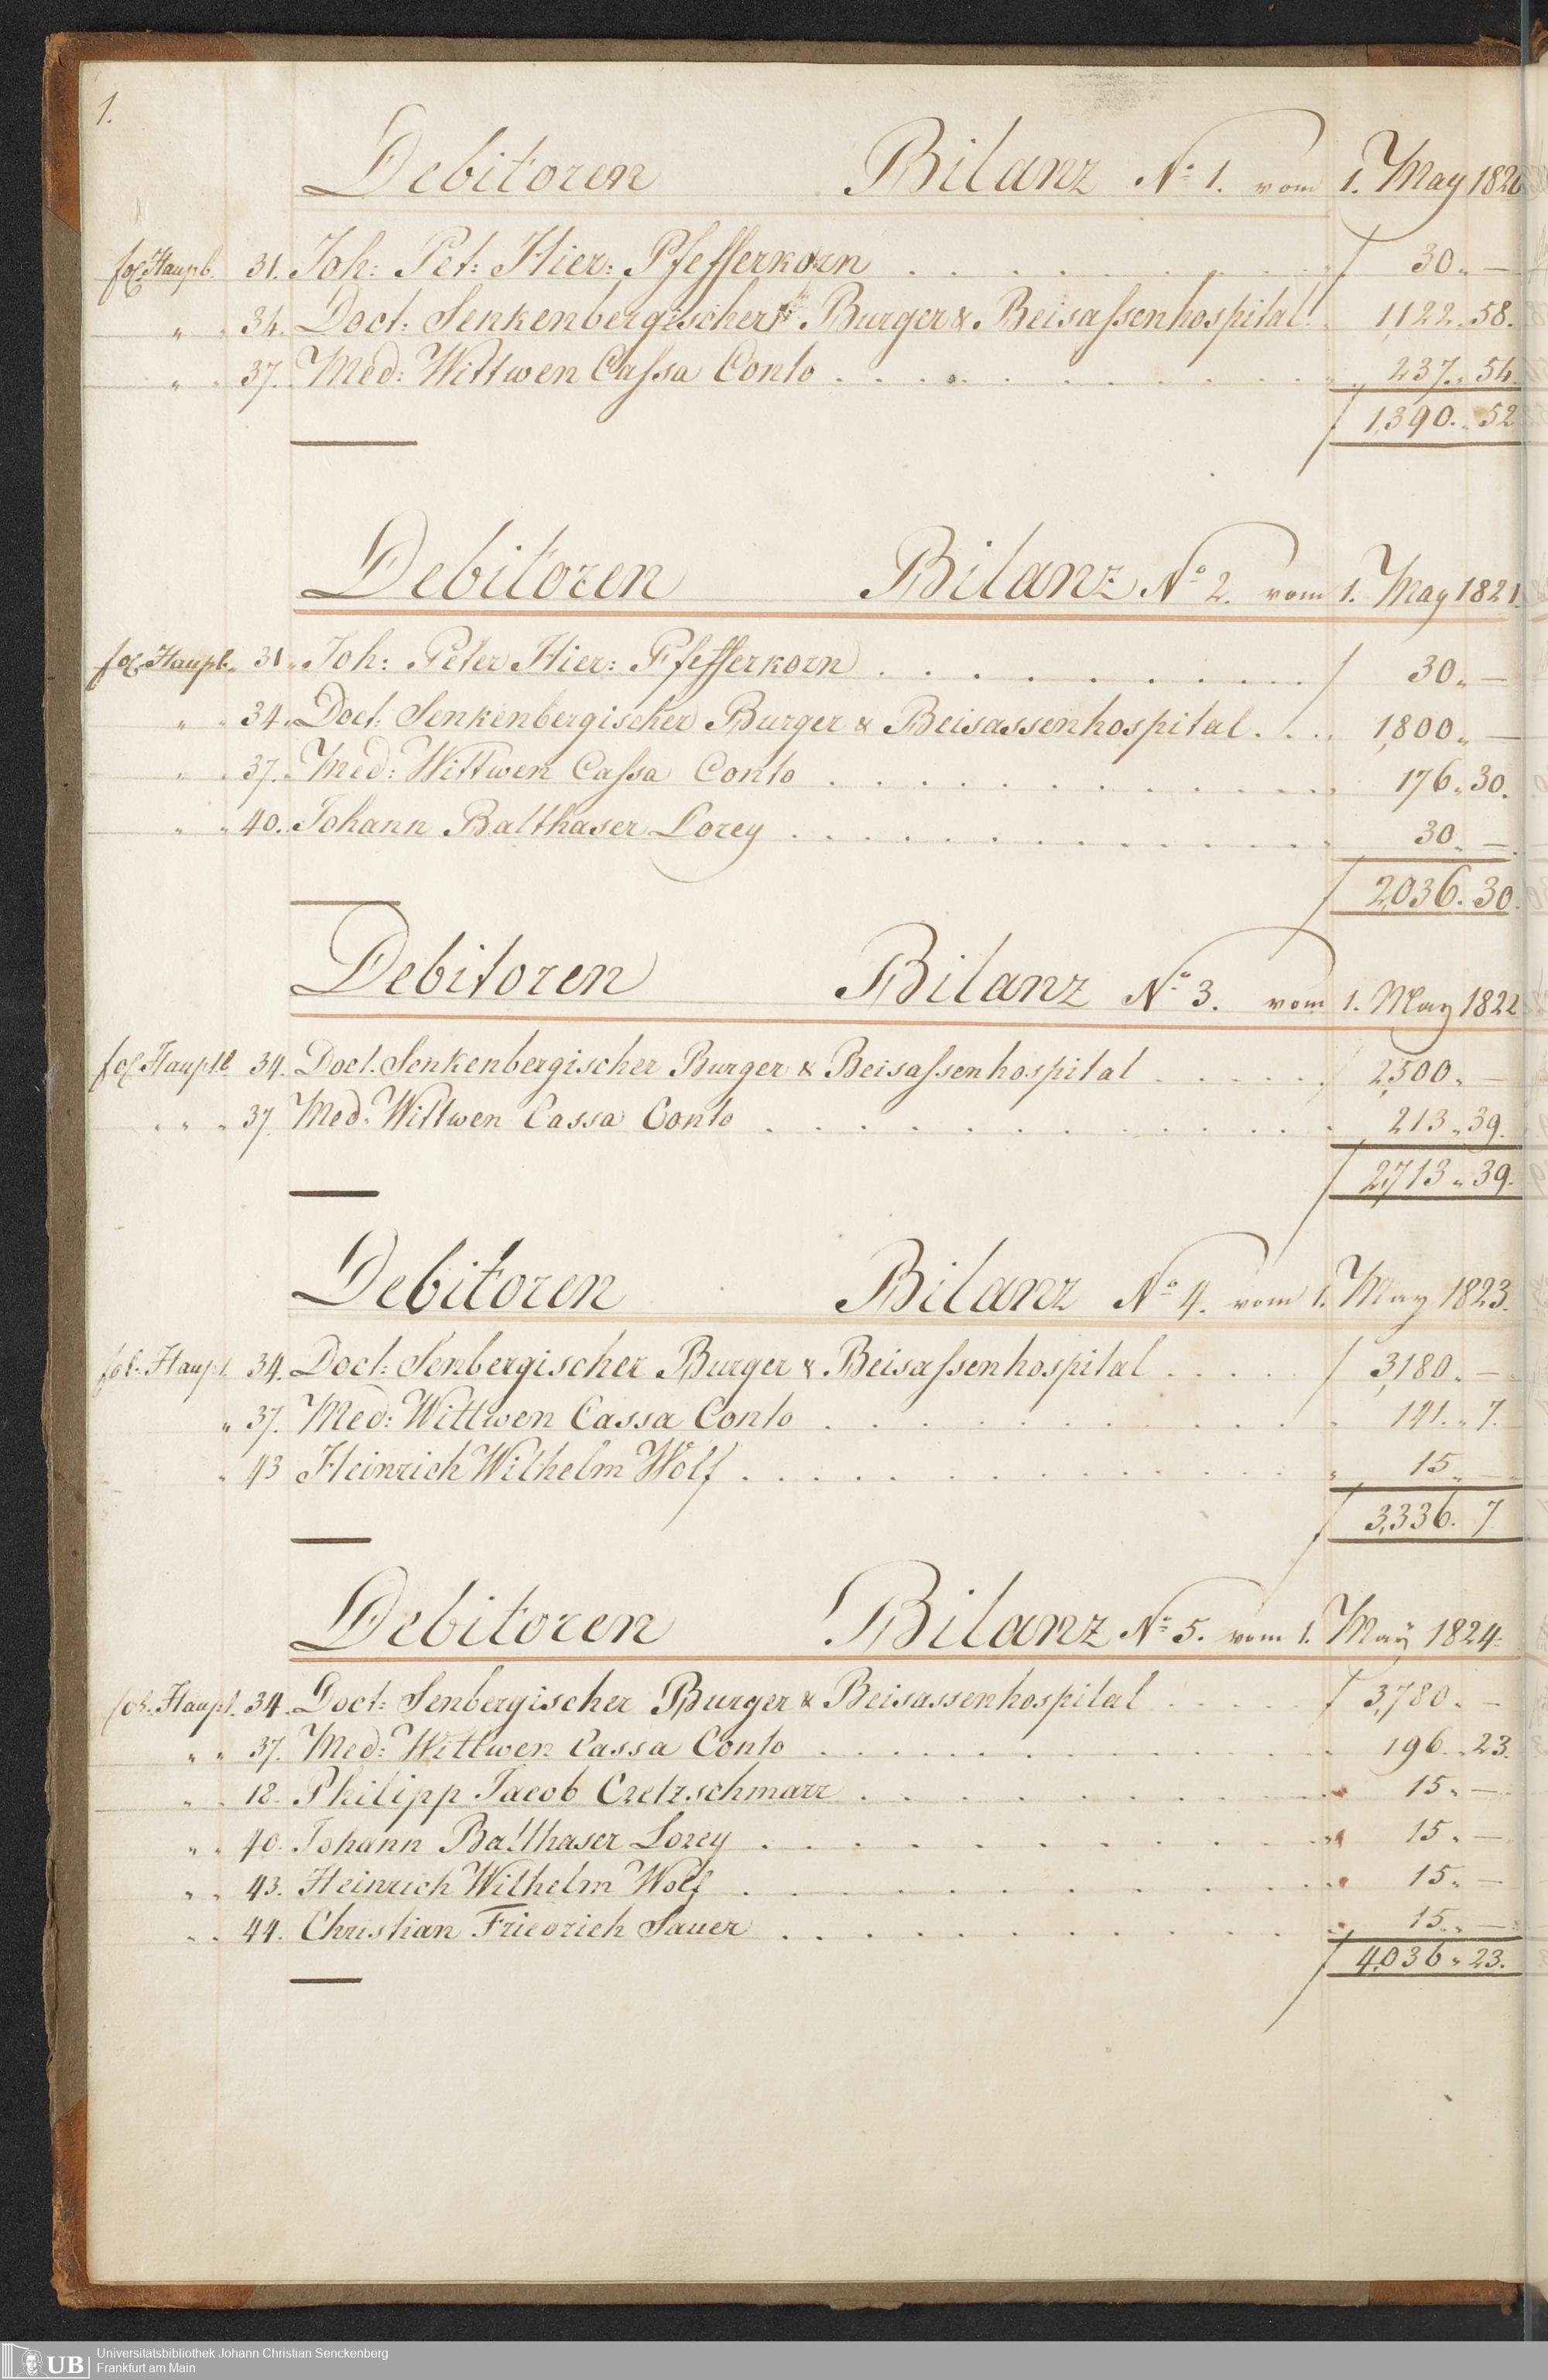 1.
Debitoren Bilanz No 1. vom 1. May 1820
fol. Hauptb. 31. Joh: Pet: Hier: Pfefferkorn f 30. —
" " 34. Doct: Senkenbergischer Burger & Beisassenhospital 1,122. 58.
" " 37. Med: Wittwen Cassa Conto 237. 54.
f 1,390. 52
Debitoren Bilanz No 2. vom 1. May 1821.
fol. Hauptb. 31. Joh: Peter Hier: Pfefferkorn f 30. —
" " 34. Doct: Senkenbergischer Burger & Beisassenhospital 1,800. —
" " 37. Med: Wittwen Cassa Conto 176. 30.
" " 40. Johann Balthaser Lorey 30. —
f 2,036. 30.
Debitoren Bilanz No 3. vom 1. May 1822
fol. Hauptb 34. Doct. Senkenbergischer Burger & Beisassenhospital f 2,500. —
" " " 37. Med. Wittwen Cassa Conto 213. 39.
f 2,713. 39.
Debitoren Bilanz No 4. vom 1. May 1823.
fol. Haupt. 34. Doct: Senbergischer Burger & Beisassenhospital f 3,180. —
" 37. Med: Wittwen Cassa Conto 141. 7.
" 43 Heinrich Wilhelm Wolf 15. —
f 3,336. 7
Debitoren Bilanz No 5. vom 1. Maÿ 1824.
fol. Haupt. 34. Doct: Senbergischer Burger & Beisassenhospital f 3,780. —
" " 37. Med: Wittwen Cassa Conto 196. 23.
" " 18. Philipp Jacob Cretzschmarr 15. —
" " 40. Johann Balthaser Lorey 15. —
" " 43. Heinrich Wilhelm Wolf 15. —
" " 44. Christian Friedrich Sauer 15. —
f 4,036. 23.
UB Universitätsbibliothek Johann Christian Senckenberg
Frankfurt am Main